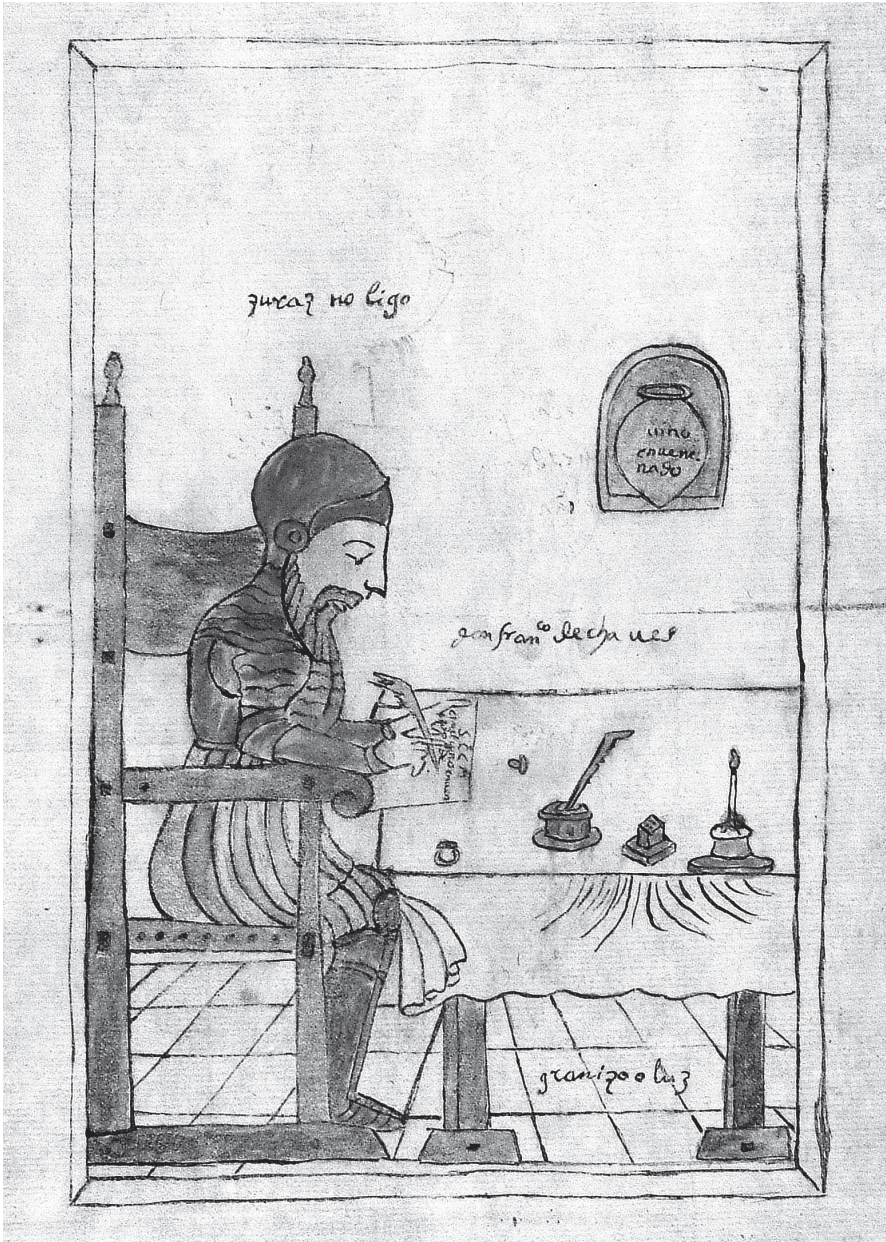 zuraz no ligo
uino
enuene
nado
don fran^co de chaues
granizo o luz